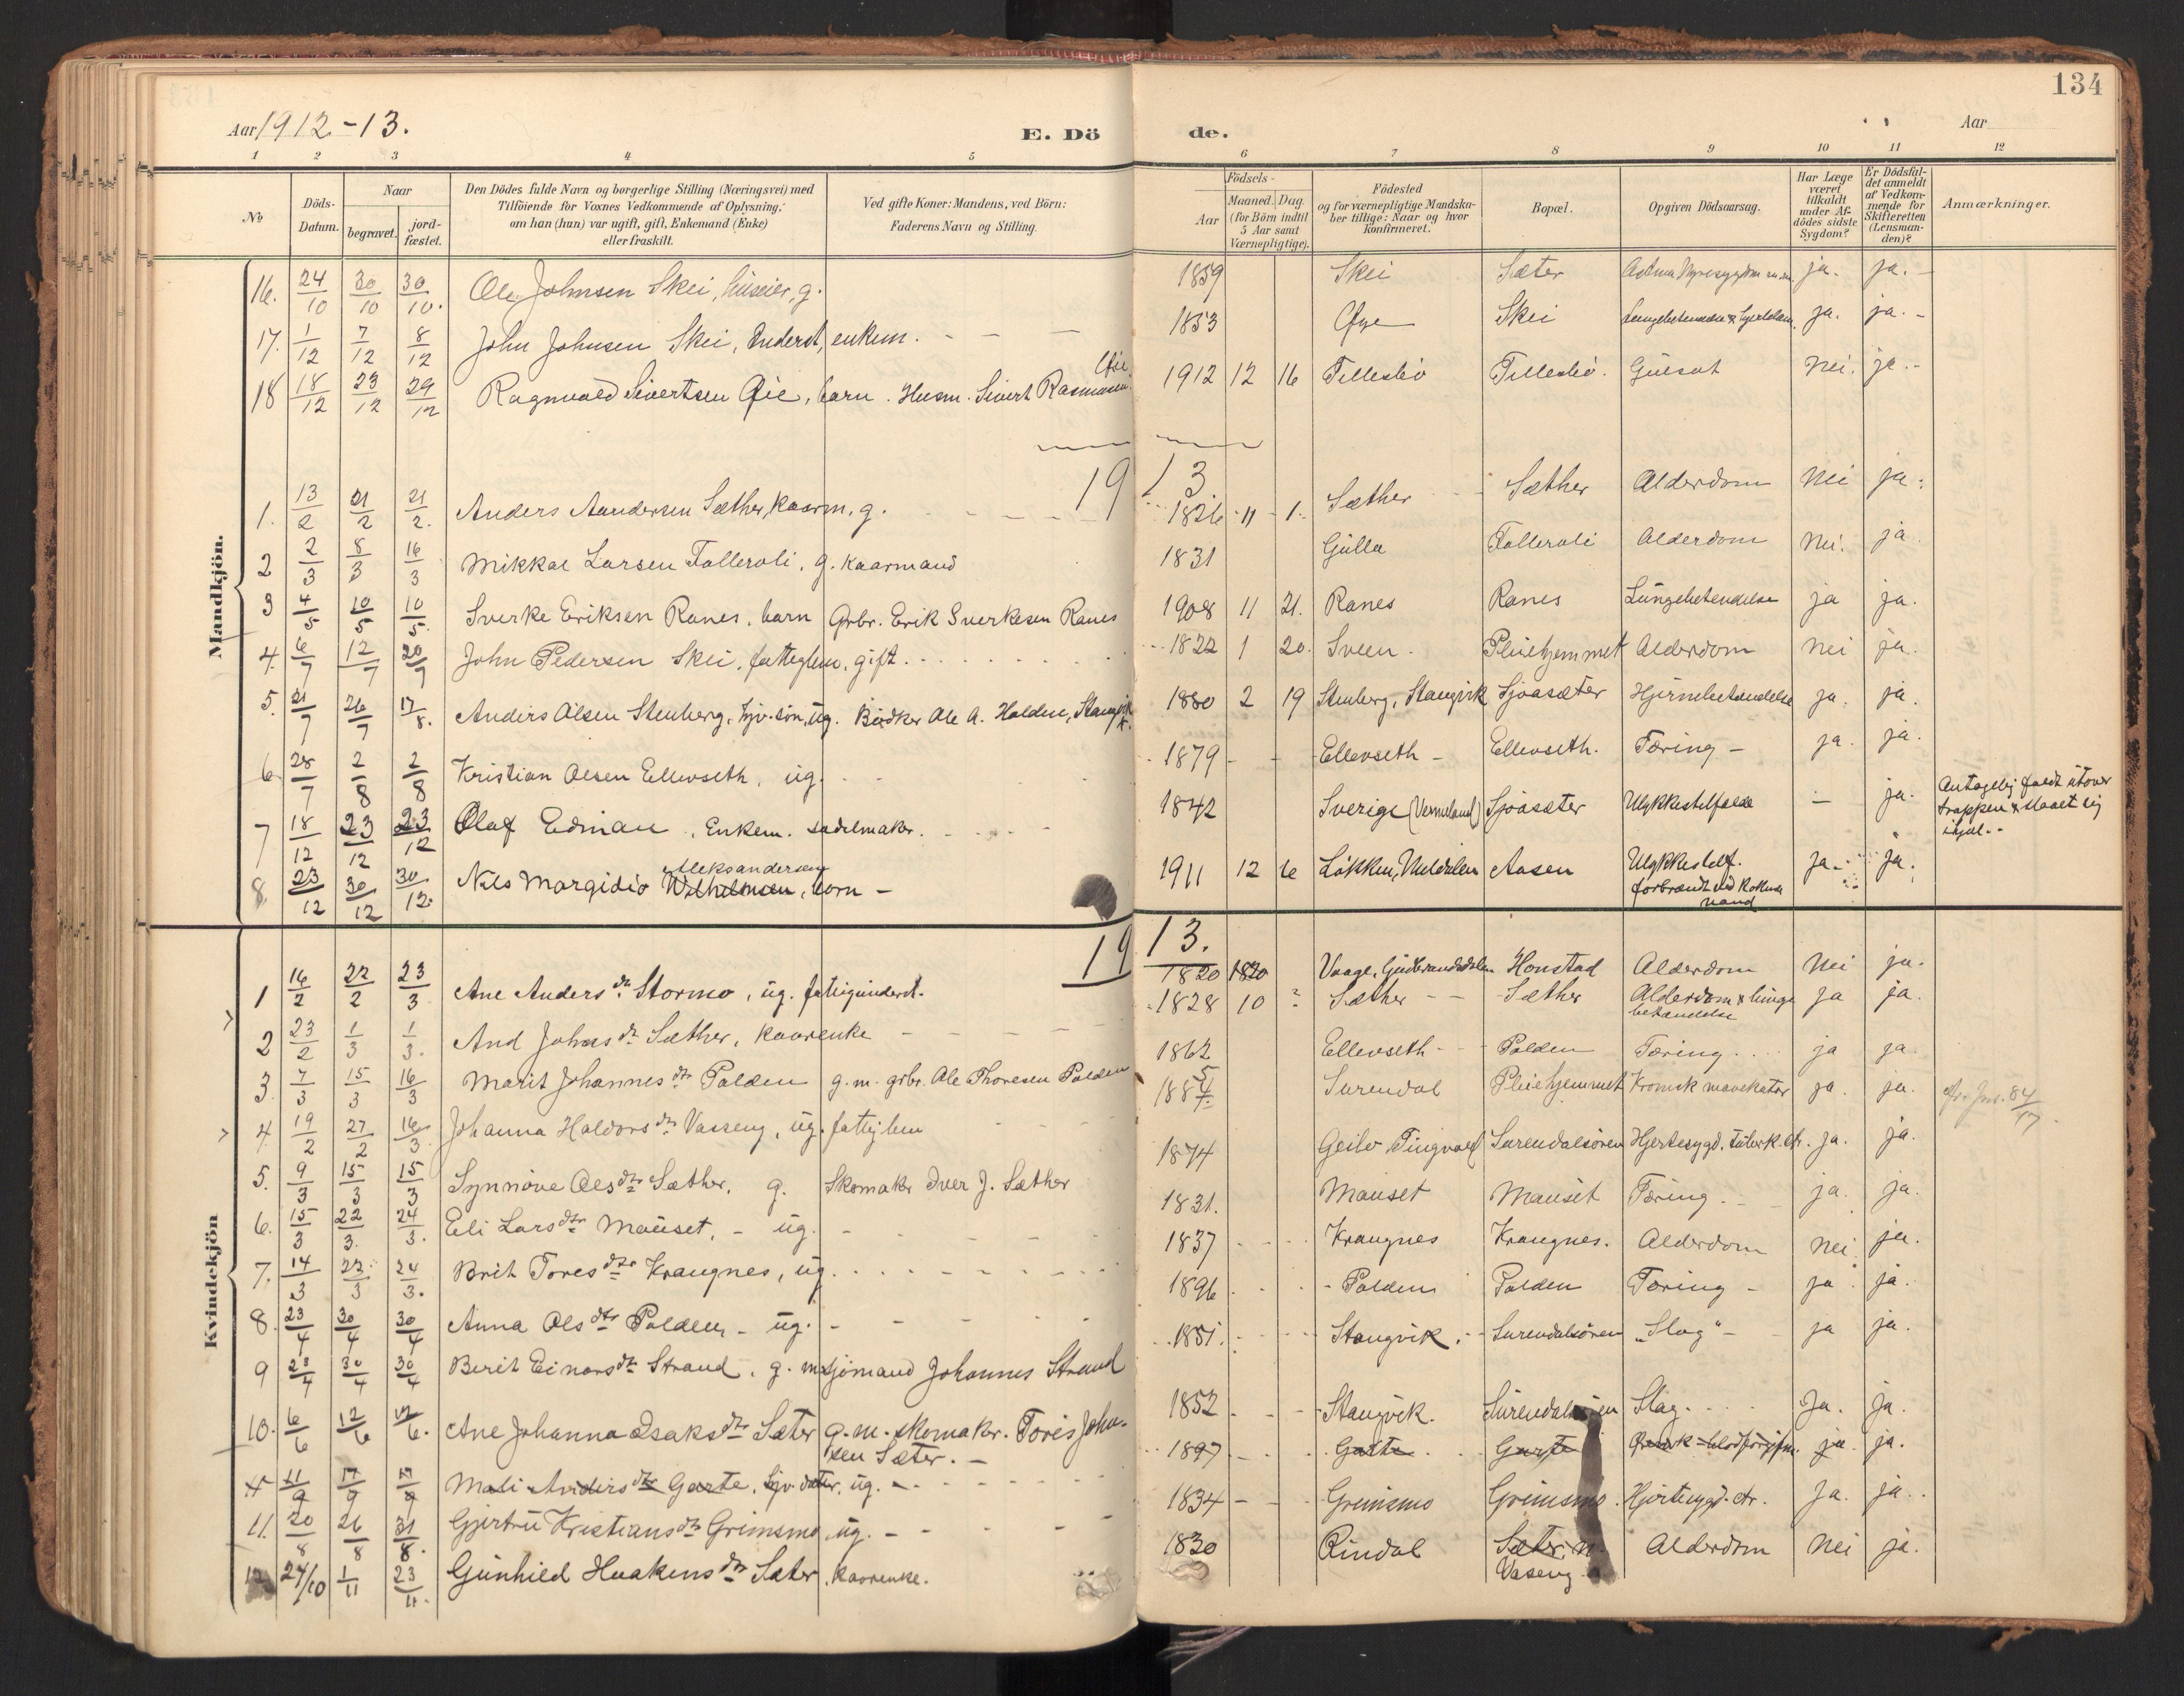 134
Aar 1912-13. E. Dö de. Aar
1 2 3 4 5 6 7 8 9 10 11 12
No Döds-Datum. Naar begravet. jord-fæstet.
Den Dödes fulde Navn og borgerlige Stilling (Næringsvei) med
Tilföiende for Voxnes Vedkommende af Oplysning:
om han (hun) var ugift, gift, Enkemand (Enke)
eller fraskilt.
Ved gifte Koner: Mandens, ved Börn:
Faderens Navn og Stilling.
Födsels-
Aar Maaned. Dag.
(for Börn indtil
5 Aar samt
Værnepligtige).
Födested
og for værnepligtige Mandska-
ber tillige: Naar og hvor
konfirmeret.
Bopæl.
Opgiven Dödsaarsag.
Har Læge
været
tilkaldt
under Af-
dödes sidste
Sygdom?
Er Dödsfal-
det anmeldt
af Vedkom-
mende for
Skifteretten
(Lensman-
den)?
Anmærkninger.
Mandkjön.
16. 24/10 30/10 30/10. Ole Johnsen Skei, huseier, g. 1859 Skei Sæter ja. ja. -
17. 1/12 7/12 8/12 John Johnsen Skei, Inderst, enkem. - - 1853 Øye Skei ja. ja. -
18 18/12 23/12 29/12 Ragnvald Sivertsen Øie, barn. Husm. Sivert Rasmussen Øie. 1912 12 16 Tellesbø Tellesbø. Gulsot Nei. ja. -
1913
1. 13/2 21/2 21/2. Anders Aandersen Sæther, kaarm, g. 1826 11 1. Sæther Sæther Alderdom Nei ja.
2 2/3 8/3 16/3 Mikkal Larsen Talleroli, g. kaarmand 1831 Gulla Talleroli Alderdom Nei. ja.
3 4/5 10/5 10/5. Sverke Eriksen Ranes, barn Grbr. Erik Sverkesen Ranes 1908 11 21. Ranes Ranes Lungebetendelse ja ja.
4. 6/7 12/7 20/9 John Pedersen Skei, fattiglem, gift. 1822 1 20. Sveen. Pleiehjemmet Alderdom Nei ja.
5. 21/7 26/7 17/8. Anders Olsen Stenberg, Gjv. søn, ug. Bødker Ole A. Halden, Stangvik. 1880 2 19 Stenberg, Stangvik Sjøasæter Hjernebetændelse ja. ja.
6. 28/7 2/8 2/8 Kristian Olsen Ellevseth, ug. 1879 - - Ellevseth - Ellevseth. Tæring - ja. ja.
7 18/12 23/12 23/12 Olaf Edman, Enkem. sadelmaker. 1842 Sverige (Vermeland) Sjøasæter Ulykkestilfælde - ja. Antagelig faldt utover
trappen & slaaet sig
ihjel. -
8. 23/12 30/12 30/12. Nils Margido Wilhelmsen, barn - Aleksandersen 1911 12 6 Løkken, Meldalen Aasen Ulykkestilf. ja. ja.
forbrændt ved kokende
vand
Kvindekjön
1913.
1 16/2 22/2 23/3 Ane Anders dtr. Stormo, ug. fattigunderst. 1820 1820 Vaage, Gudbrandsdalen Honstad Alderdom Nei ja.
2 23/2 1/3 1/3. And Johnsdtr Sæther, kaarenke 1828 10 ? Sæther - - Sæther Alderdom & lunge
betændelse ja ja.
3. 7/3 15/3 16/3 Marit Johannes dtr Polden g. m. grbr. Ole Thoresen Polden 1862 Ellevseth - Polden Tæring ja ja.
4. 19/2 27/2 16/3 Johanna Haldors dtr Vasseng, ug. fattiglem 1884 5 Surendal Pleiehjemmet Kronisk mavekatar ja. ja. cfr. Jnr. 84/17.
5. 9/3 15/3 15/3 Synnøve Olsdtr Sæther, g. Skomaker Iver J. Sæther 1874 Geilo Tingvold Surendalsøren Hjertesygd. Tuberk. etc. ja. ja.
6. 15/3 22/3. 24/3. Eli Larsdtr Mauset, - ug. 1831. Mauset Mauset Tæring - ja. ja.
7. 14/3 23/3 24/3. Brit Tores dtr Krangnes, ug. 1837 Krangnes Krangnes. Alderdom Nei ja.
8. 23/4 30/4 30/4 Anna Olsdtr Polden - ug. 1896 Polden Polden Tæring - ja ja.
9 23/4 30/4 30/4 Berit Einarsdtr Strand, g. m. sjømand Johannes Strand 1851. Stangvik. - Surendalsøren "Slag" - ja ja.
10. 6/6 12/6 12/6. Ane Johanna Isaksdtr Sæter g. m. skomaker. Tores John-
sen Sæter. - 1852 Stangvik. Surendalsøren Slag. Ja. ja.
11/9 17/9 17/9 Mali Andersdtr Garte, Gjv. datter, ug. - 1897 Garte Garte ja. ja.
11. 20/8 26/8 31/8. Gjertru Kristiansdtr Grimsmo ug. - 1834 - Grimsmo Grimsmo. Hjertesygd. etc. Ja. ja.
12. 24/10 1/11 23/11. Gunhild Haakens dtr Sæter, kaarenke. 1830 Rindal Sæter, n. Alderdom Nei ja.
Vaseng